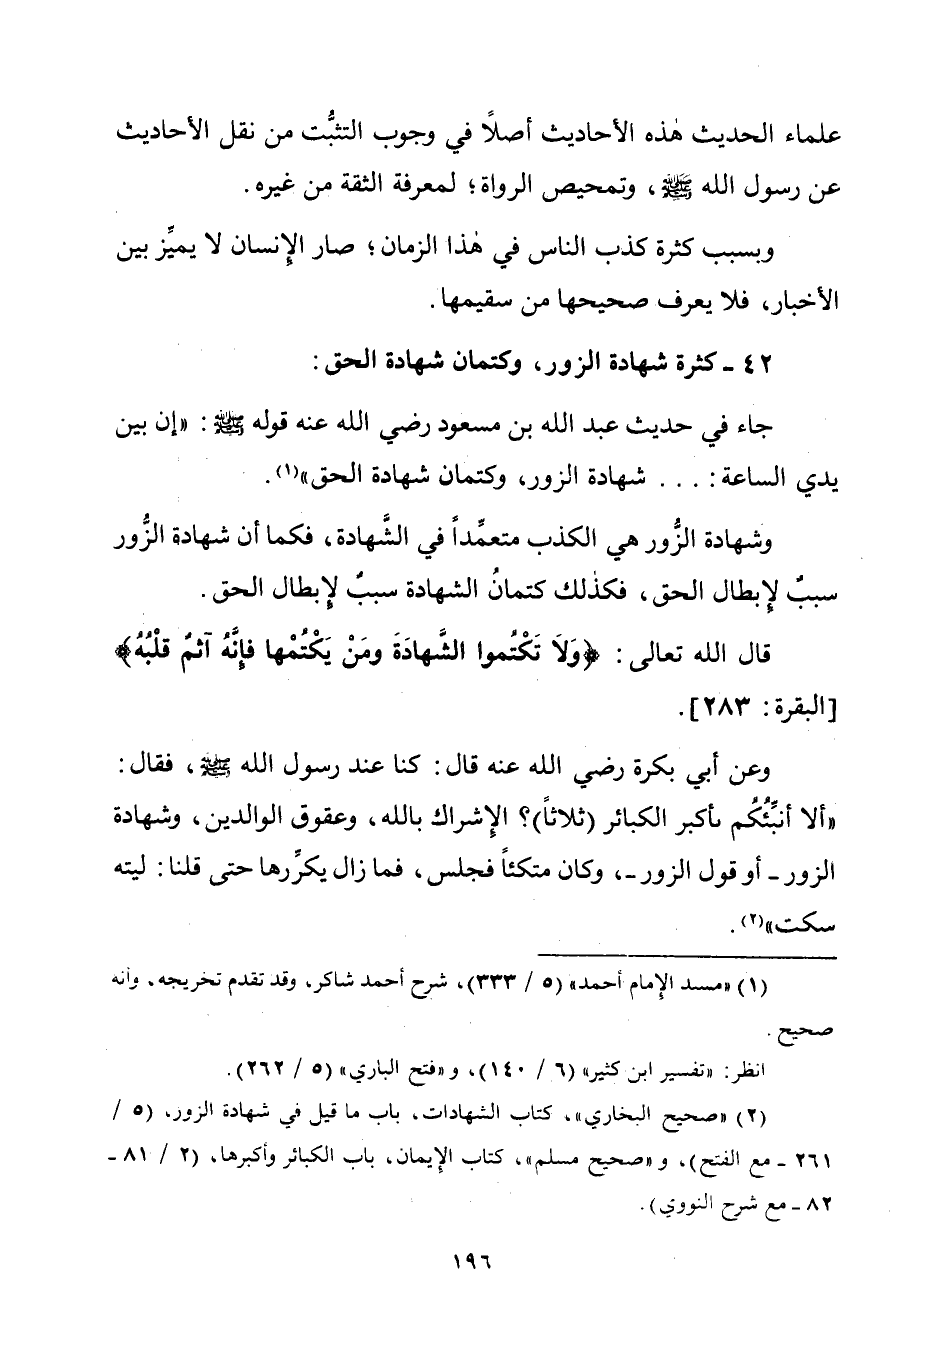 علماء الحديث هٰذه الأحاديث أصلاً في وجوب التثبُّت من نقل الأحاديث
عن رسول الله ﷺ، وتمحيص الرواة؛ لمعرفة الثقة من غيره.
وبسبب كثرة كذب الناس في هٰذا الزمان؛ صار الإنسان لا يميِّز بين
الأخبار، فلا يعرف صحيحها من سقيمها.
٤٢ ـ كثرة شهادة الزور، وكتمان شهادة الحق:
جاء في حديث عبد الله بن مسعود رضي الله عنه قوله ﷺ: «إن بين
يدي الساعة: . . . شهادة الزور، وكتمان شهادة الحق»(١).
وشهادة الزُّور هي الكذب متعمِّداً في الشَّهادة، فكما أن شهادة الزُّور
سببٌ لإبطال الحق، فكذٰلك كتمانُ الشهادة سببٌ لإبطال الحق.
قال الله تعالى: ﴿وَلَا تَكْتُموا الشَّهادَةَ ومَنْ يَكْتُمْها فإِنَّهُ آثمٌ قلْبُهُ﴾
[البقرة: ٢٨٣].
وعن أبي بكرة رضي الله عنه قال: كنا عند رسول الله ﷺ، فقال:
«ألا أنبِّئُكُم بأكبر الكبائر (ثلاثاً)؟ الإشراك بالله، وعقوق الوالدين، وشهادة
الزور ـ أو قول الزور ـ، وكان متكئاً فجلس، فما زال يكرِّرها حتى قلنا: ليته
سكت»(٢).
(١) «مسند الإمام أحمد» (٥ / ٣٣٣)، شرح أحمد شاكر، وقد تقدم تخريجه، وأنه
صحيح.
انظر: «تفسير ابن كثير» (٦ / ١٤٠)، و«فتح الباري» (٥ / ٢٦٢).
(٢) «صحيح البخاري»، كتاب الشهادات، باب ما قيل في شهادة الزور، (٥ /
٢٦١ ـ مع الفتح)، و«صحيح مسلم»، كتاب الإيمان، باب الكبائر وأكبرها، (٢ / ٨١ ـ
٨٢ ـ مع شرح النووي).
١٩٦